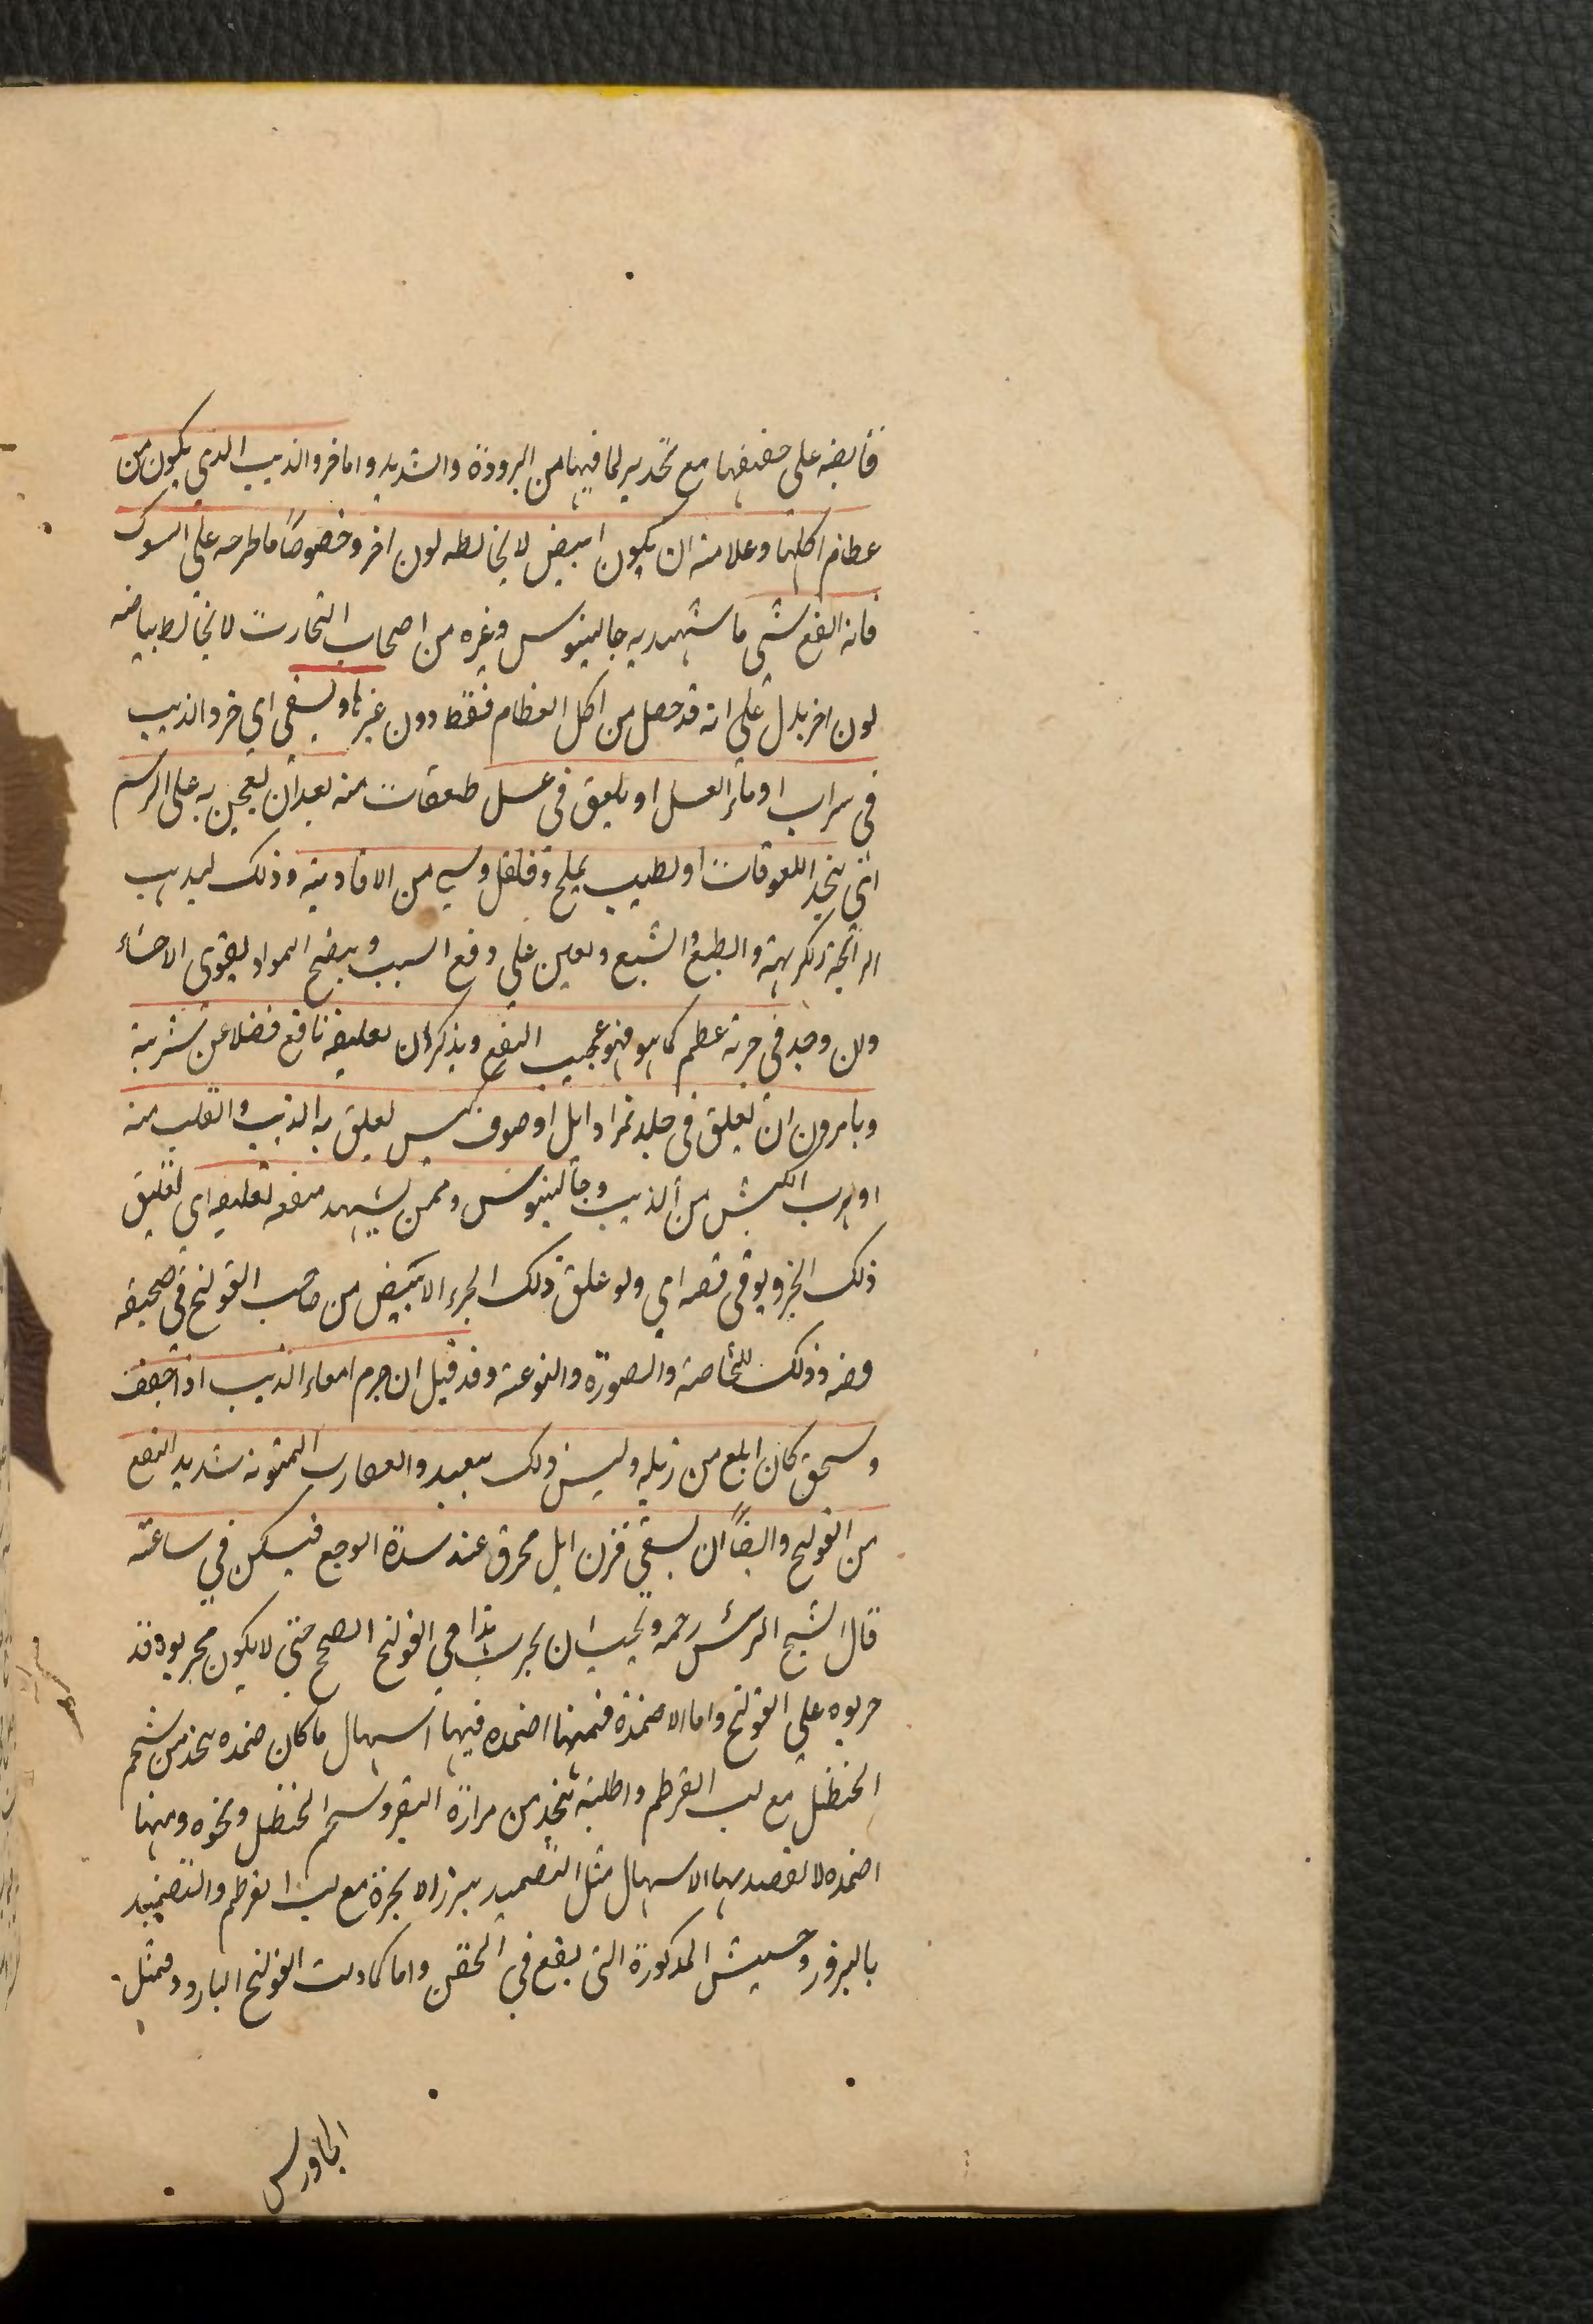 قابضه على ضعيفها مع تخدير لما فيها من البرودة والشديده واما خرو الذيب الذى يكون من
عظام اكلها وعلامته ان يكون ابيض لا يخالطه لون اخر وخصوصاً ما طرحه على الشوك
فانه انفع شى ما شهد به جالينوس وغيره من اصحاب التجارب لا يخالط بياضه
لون اخر يدل على انه قد حصل من اكل العظام فقط دون غيرها ويسقى اى خرو الذيب
فى شراب او ماء العسل او يلعق فى عسل طعقات منه بعد ان يعجن به على الرسم
التى يتخذ اللعوقات او يطيب بملح وفلفل وشى من الافاوية وذلك ليذهب
الرائحة الكريهة والطبع والشبع ويعين على دفع السبب وينضج المواد ليقوى الاحشاء
وان وجد فى خرئه عظم كما هو فهو عجيب النفع ويذكر ان تعليقه نافع فضلا عن شربه
ويامرون ان يعلق فى جلد نمر او ايل او صوف كبش تعلق به الذيب وانقلب منه
او هرب الكبش من الذيب وجالينوس وممن يشهد منفعه تعليقه اى تعليق
ذلك الخرو يوقى فضه اى ولو علق ذلك الجزء الابيض من صاحب القولنج فى صحيفه
فضه وذلك للخاصة والصورة والنوعية وقد قيل ان جرم امعاء الذيب اذا جفف
وسحق كان ابلغ من زبله وليس ذلك ببعيد والعقارب المشوية شديد النفع
من القولنج وايضاً ان يسقى قرن ايل محرق عند شدة الوجع فيسكن فى ساعته
قال الشيخ الرئس رحمه ويجب ان يجرب هذا فى القولنج الصحيح حتى لا يكون مجربوه قد
جربوه على القولنج واما الاضمدة فمنها اضمده فيها اسهال ما كان ضمده يتخذ من شحم
الحنظل مع لب القرطم واطلية تتخذ من مرارة البقر وشحم الحنظل ونحوه ومنها
اضمده لا يقصد بها الاسهال مثل التضميد ببزر الانجرة مع لب القرطم والتضميد
بالبزور وحشيش المذكورة التى يقع فى الحقن واما كمادات القولنج البارد فمثل
الجاورس